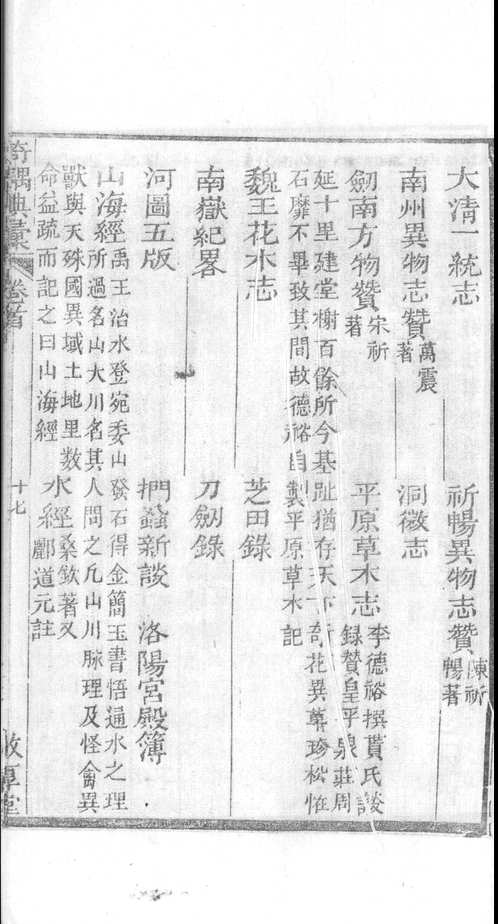 大清一統志　祈暢異物志贊陳祈暢著
南州異物志贊萬震著　洞微志
劒南方物贊宋祈著　平原草木志李德裕撰賈氏談錄贊皇平泉莊周
延十里建堂榭百餘所今基趾猶存天下奇花異草珍松怪
石靡不畢致其間故德裕自製平原草木記
魏王花木志　芝田錄
南嶽紀畧　刀劒錄
河圖五版　捫蝨新談　洛陽宮殿簿
山海經禹王治水登宛委山發石得金簡玉書悟通水之理
所過名山大川名其人間之凡山川脉理及怪禽異
獸與天殊國異域土地里數　水經桑欽著又
命益疏而記之曰山海經　酈道元註
奇偶典彙　卷首　十七